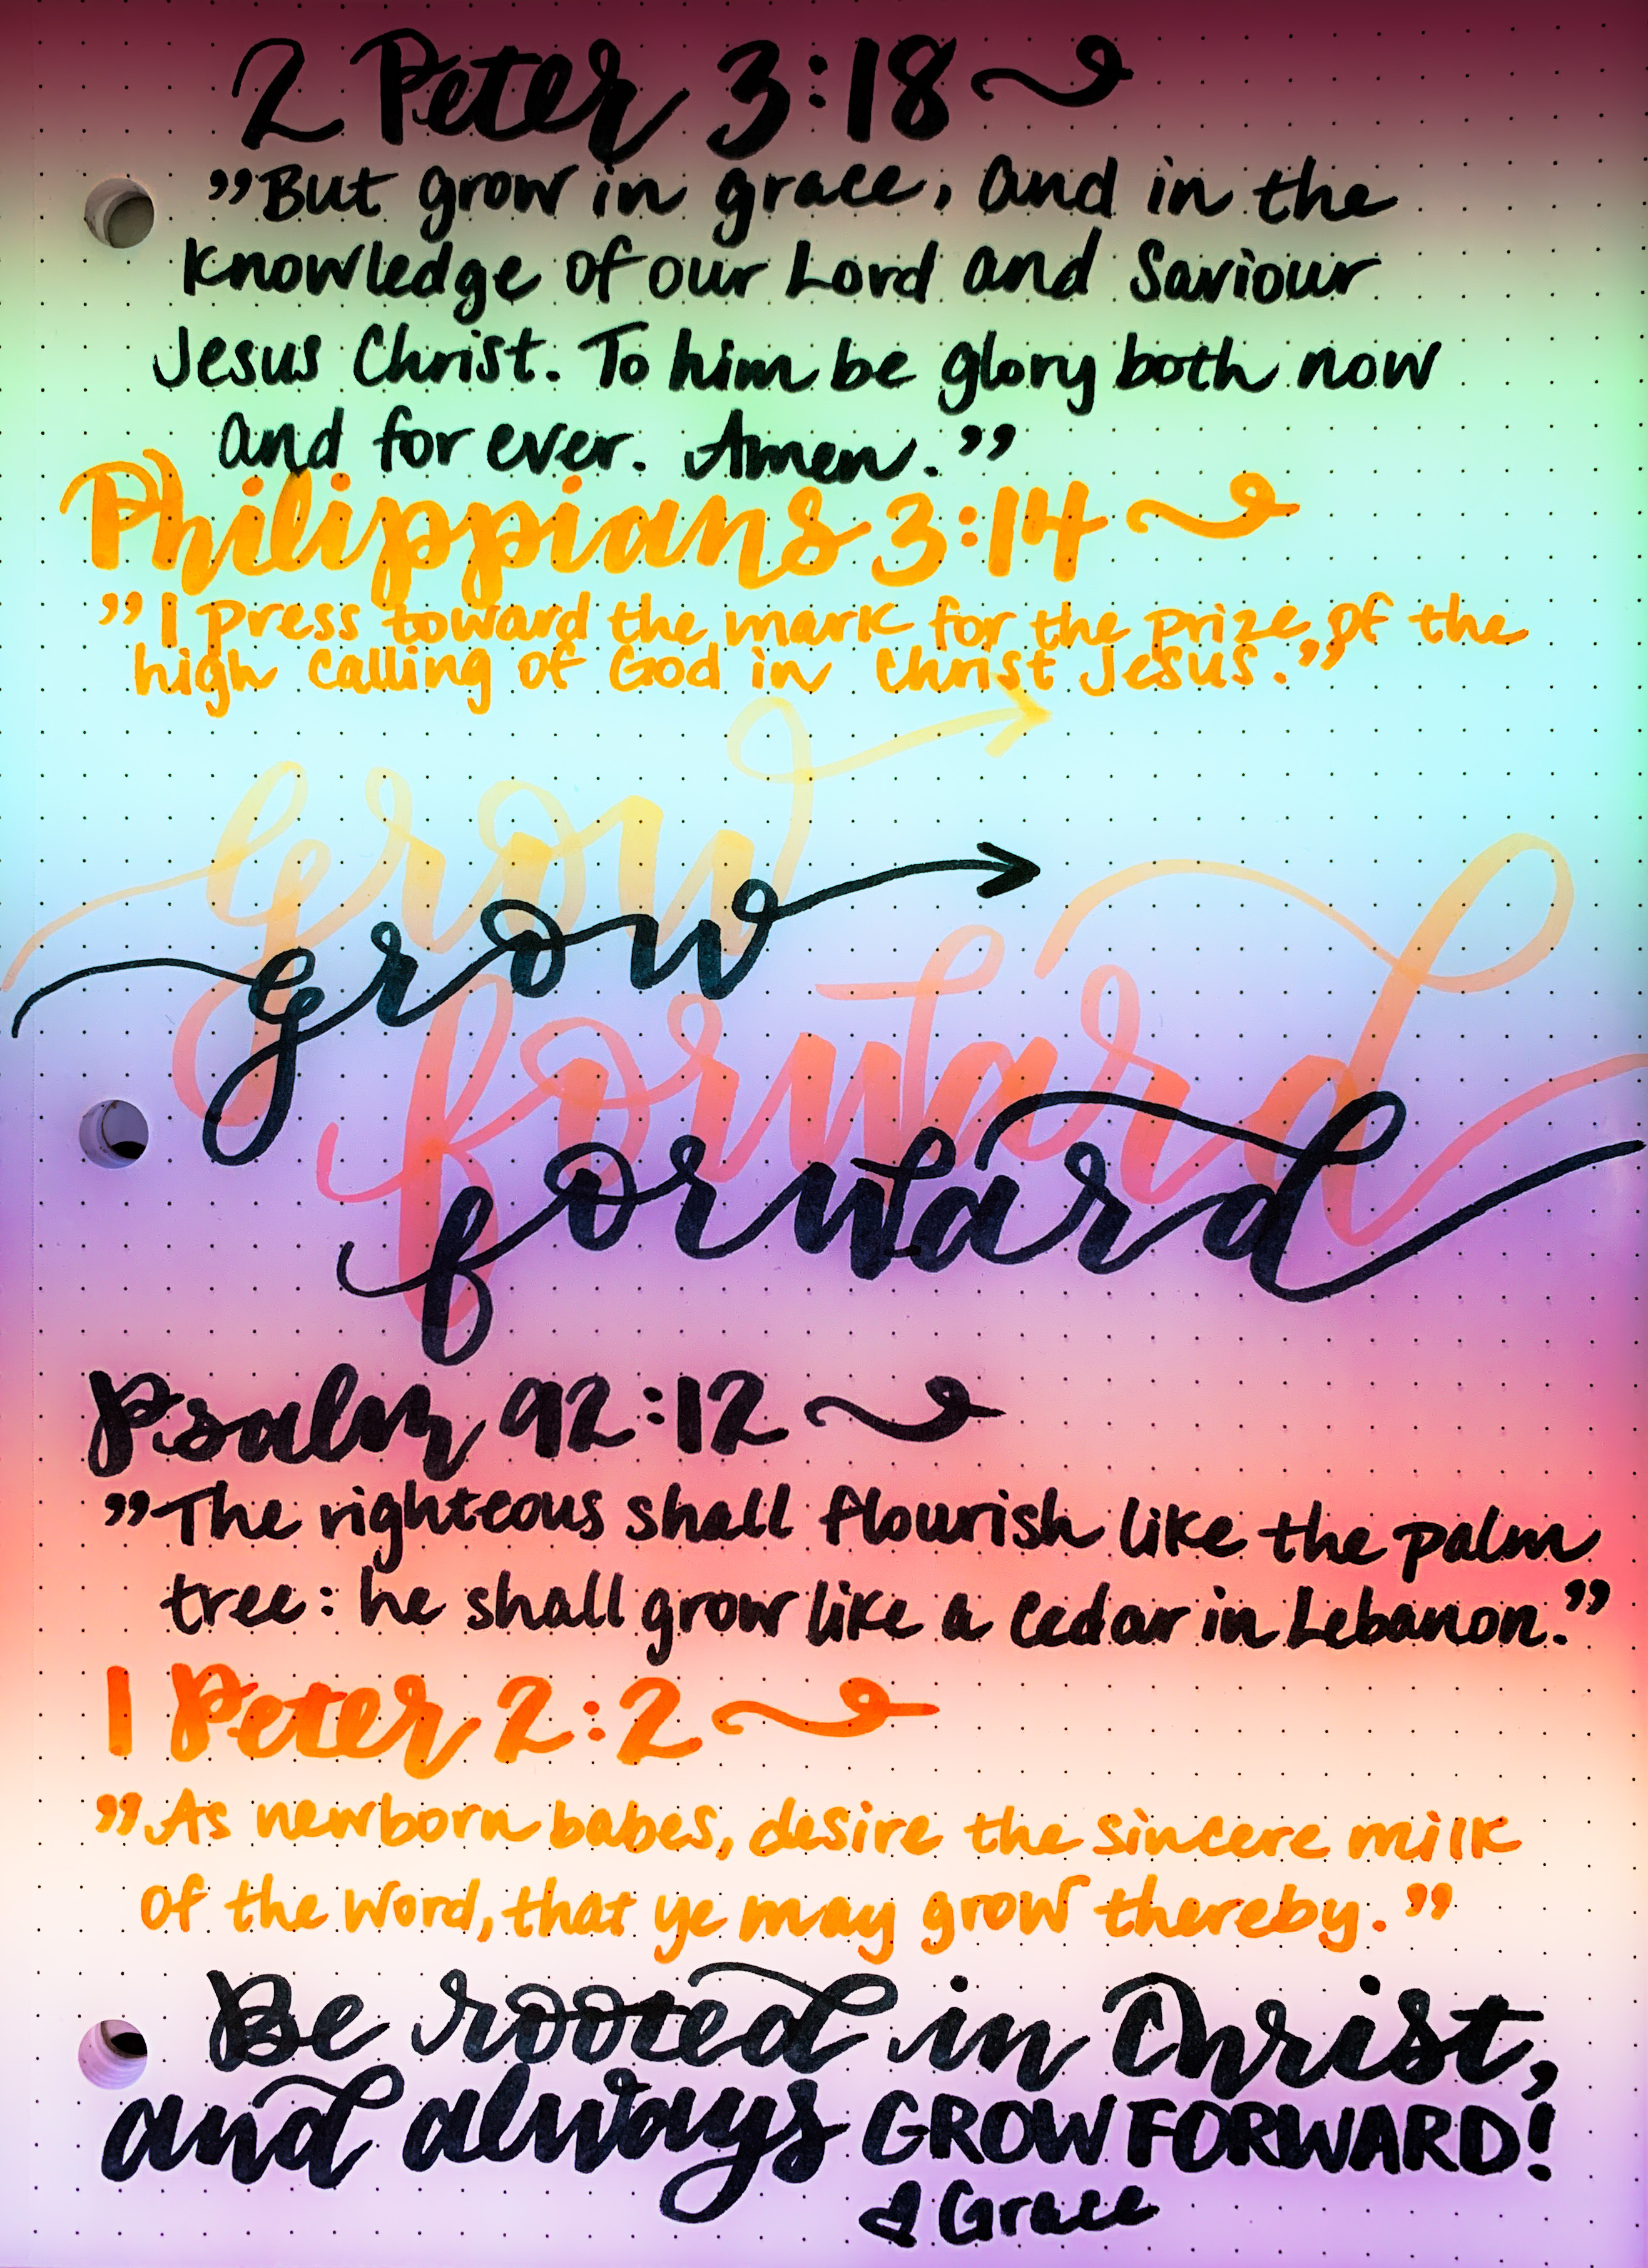 2 Peter 3:18
"But grow in grace, and in the
knowledge of our Lord and Saviour
Jesus Christ. To him be glory both now
and for ever. Amen."
Philippians 3:14
"I press toward the mark for the prize of the
high calling of God in Christ Jesus."
grow
grow
forward
forward
Psalm 92:12
"The righteous shall flourish like the palm
tree: he shall grow like a cedar in Lebanon."
1 Peter 2:2
"As newborn babes, desire the sincere milk
of the Word, that ye may grow thereby."
Be rooted in Christ,
and always GROW FORWARD!
Grace